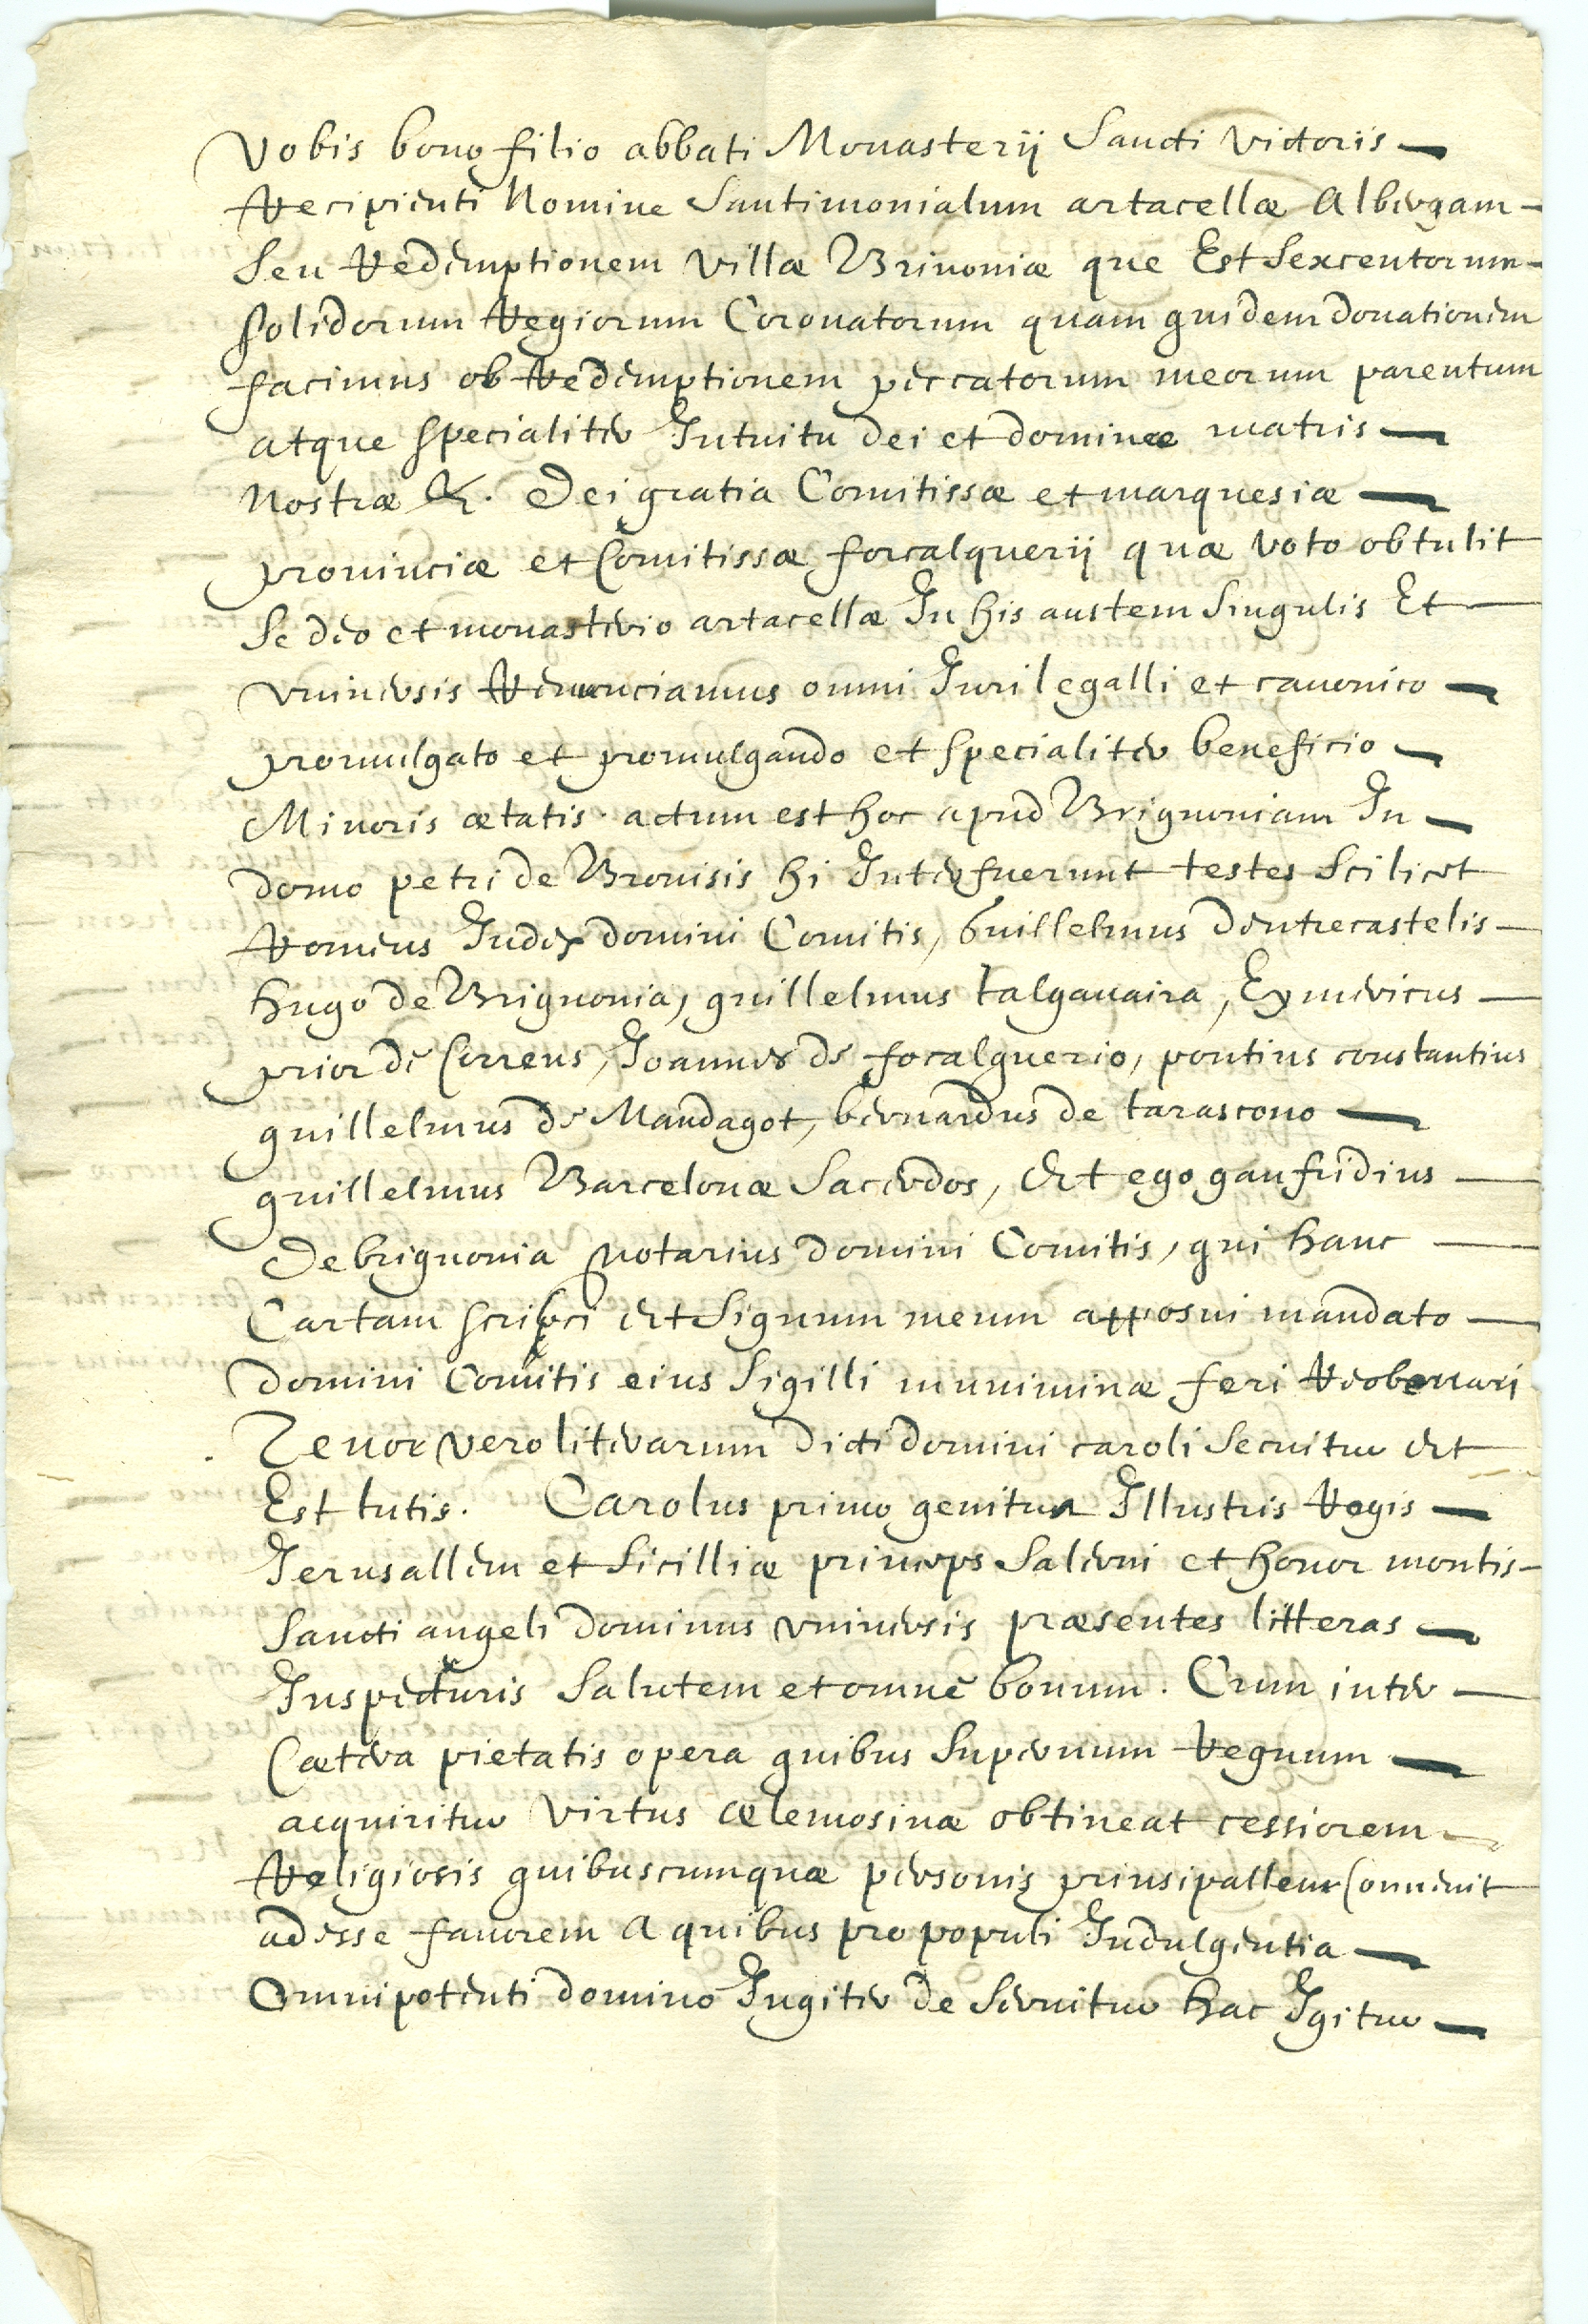 Vobis bono filio abbati Monasterij Sancti Victoris
Recipienti Nomine Santimonialum artacellæ Albergam
Seu Redemptionem Villæ Brinoniæ que Est Sexcentorum
Solidorum Regiorum Coronatorum quam quidem donationem
facimus ob Redemptionem peccatorum meorum parentum
atque specialiter Intuitu dei et dominæ matris
Nostræ &. Dei gratia Comitissæ et marquesiæ
prouinciæ et Comitissæ forcalquerij quæ voto obtulit
Se deo et monasterio artacellæ In his austem Singulis Et
vniuersis Renunciamus omni Iuri legalli et canonico
promulgato et promulgando et specialiter beneficio
Minoris ætatis. actum est hoc apud Brignoniam In
domo petri de Brouisis hi Interfuerunt testes Scilicet
Romeus Iudex domini Comitis, Guillelmus Dentrecastelis
hugo de Brignonia, guillelmus talgauaira, Eymericus
prior de Correns, Ioannes de focalquerio, pontius constantius
guillelmus de Mandagot, bernardus de tarascono
guillelmus Barcelonæ Sacerdos, Et ego gaufridius
De brignonia notarius domini Comitis, qui hanc
Cartam scripci Et Signum meum apposui mandato
domini Comitis eius Sigilli muniminæ feri
Tenor vero literarum dicti domini caroli Secuitur Et
Est tutis. Carolus primo genitus Illustris Regis
Ierusallem et Sicilliæ princeps Salerni et honor montis
Sancti angeli dominus vniuersis præsentes litteras
Inspecturis Salutem et omne bonum. Cum inter
Cætera pietatis opera quibus Supernum Regnum
acquiritur virtus ælemosinæ obtineat cessiorem
Religiosis quibuscumquæ personis prinsipallem Conuenit
adesse fauorem A quibus pro populi Indulgentia
Omnipotenti domino Iugiter de Seruitur hac Igitur